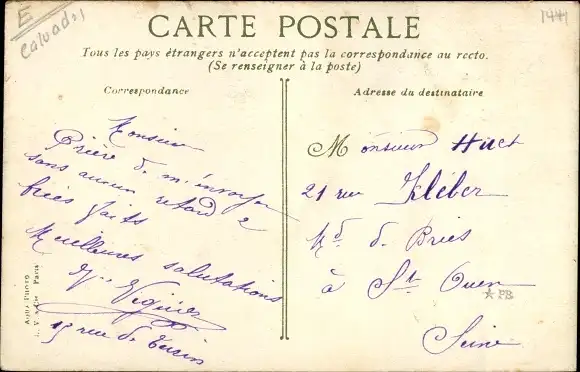 E
Calvados
1441
CARTE POSTALE
Tous les pays étrangers n'acceptent pas la correspondance au recto.
(Se renseigner à la poste)
Correspondance
Adresse du destinataire
Monsieur
Prière de m'envoyer
sans aucun retard 2
bries faits
Meilleures salutations
Vignier
15 rue de Turin
Monsieur Huet
21 rue Kléber
Md. de Bries
à St Ouen
Seine
PB
Paris